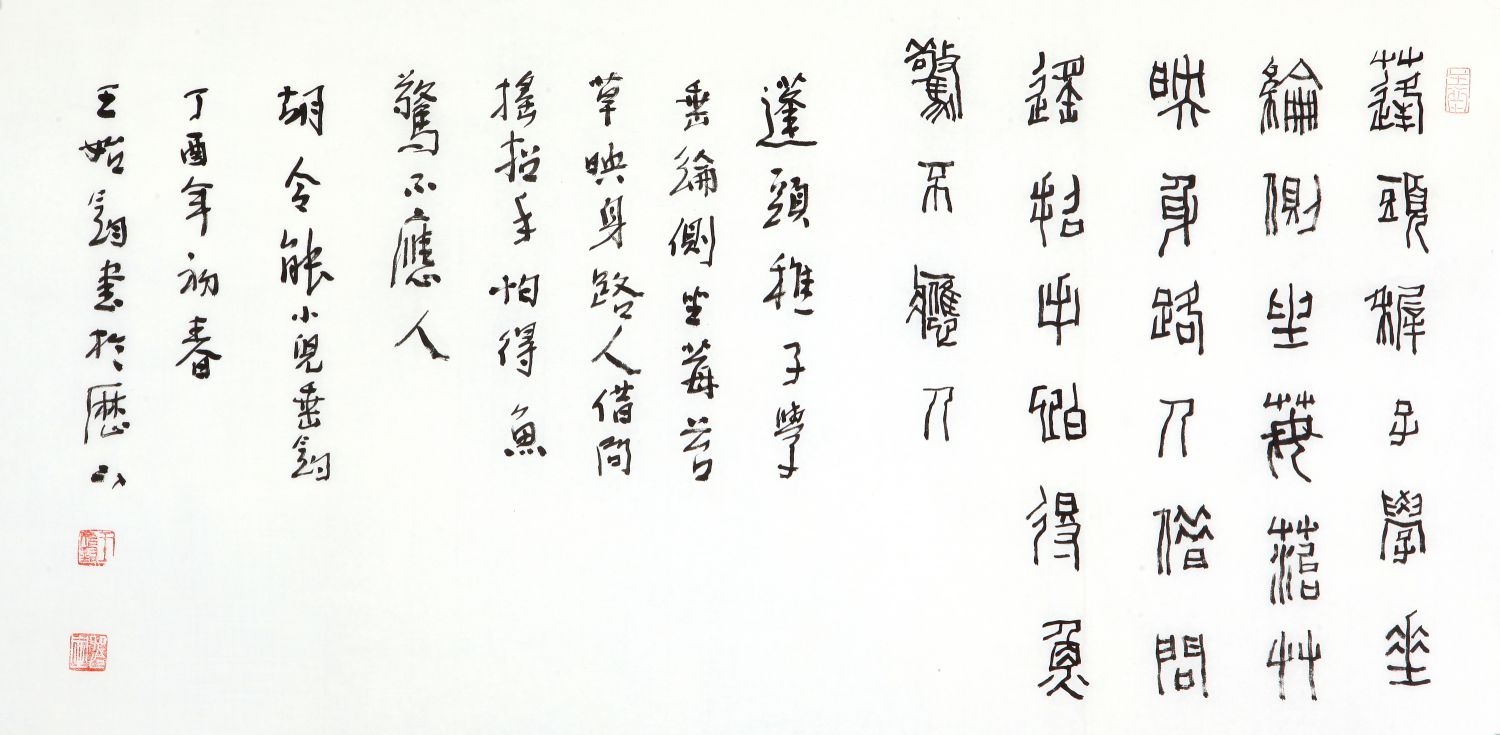 蓬頭稺子學垂
綸側坐莓菭艸
映身路人借問
遥招手怕得魚
驚不應人
蓬頭稚子學
垂綸側坐莓苔
草映身路人借問
搖招手怕得魚
驚不應人
胡令能小兒垂釣
丁酉年初春
王始鈞書於歷下